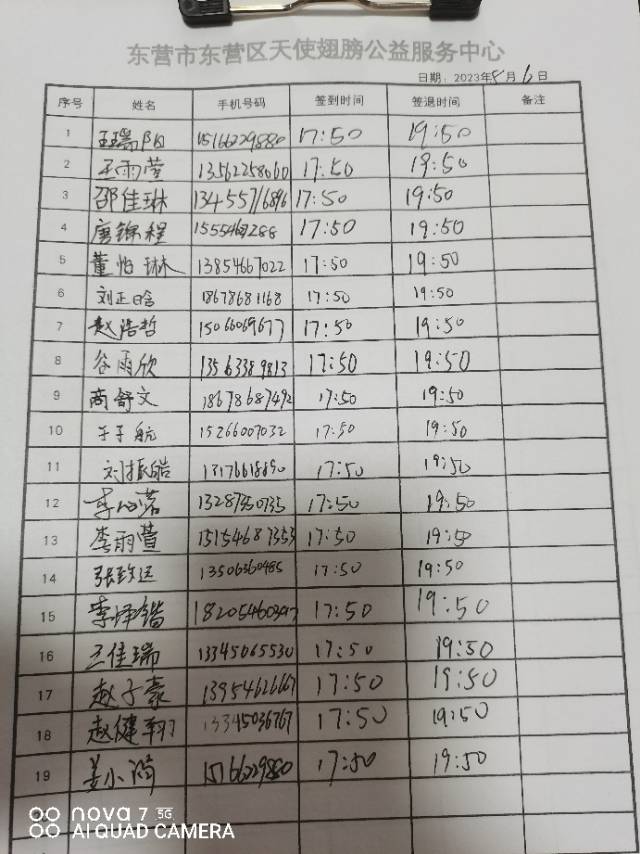 东营市东营区天使翅膀公益服务中心
日期：2023年8月6日
序号 姓名 手机号码 签到时间 签退时间 备注
1 王瑞阳 15166229880 17:50 19:50
2 王雨莹 13562258060 17:50 19:50
3 邵佳琳 13455716896 17:50 19:50
4 唐锦程 17:50 19:50
5 董怡琳 13854667022 17:50 19:50
6 刘正晗 18678681168 17:50 19:50
7 赵浩哲 15066069677 17:50 19:50
8 谷雨欣 13563389813 17:50 19:50
9 商舒文 18678687492 17:50 19:50
10 于子航 15266007032 17:50 19:50
11 刘振皓 17:50 19:50
12 17:50 19:50
13 李雨萱 15154687353 17:50 19:50
14 张致远 13506360485 17:50 19:50
15 17:50 19:50
16 王佳瑞 13345065530 17:50 19:50
17 赵子豪 13954626667 17:50 19:50
18 赵健翔 13345036767 17:50 19:50
19 姜小满 15166229880 17:50 19:50
nova 7 5G
AI QUAD CAMERA